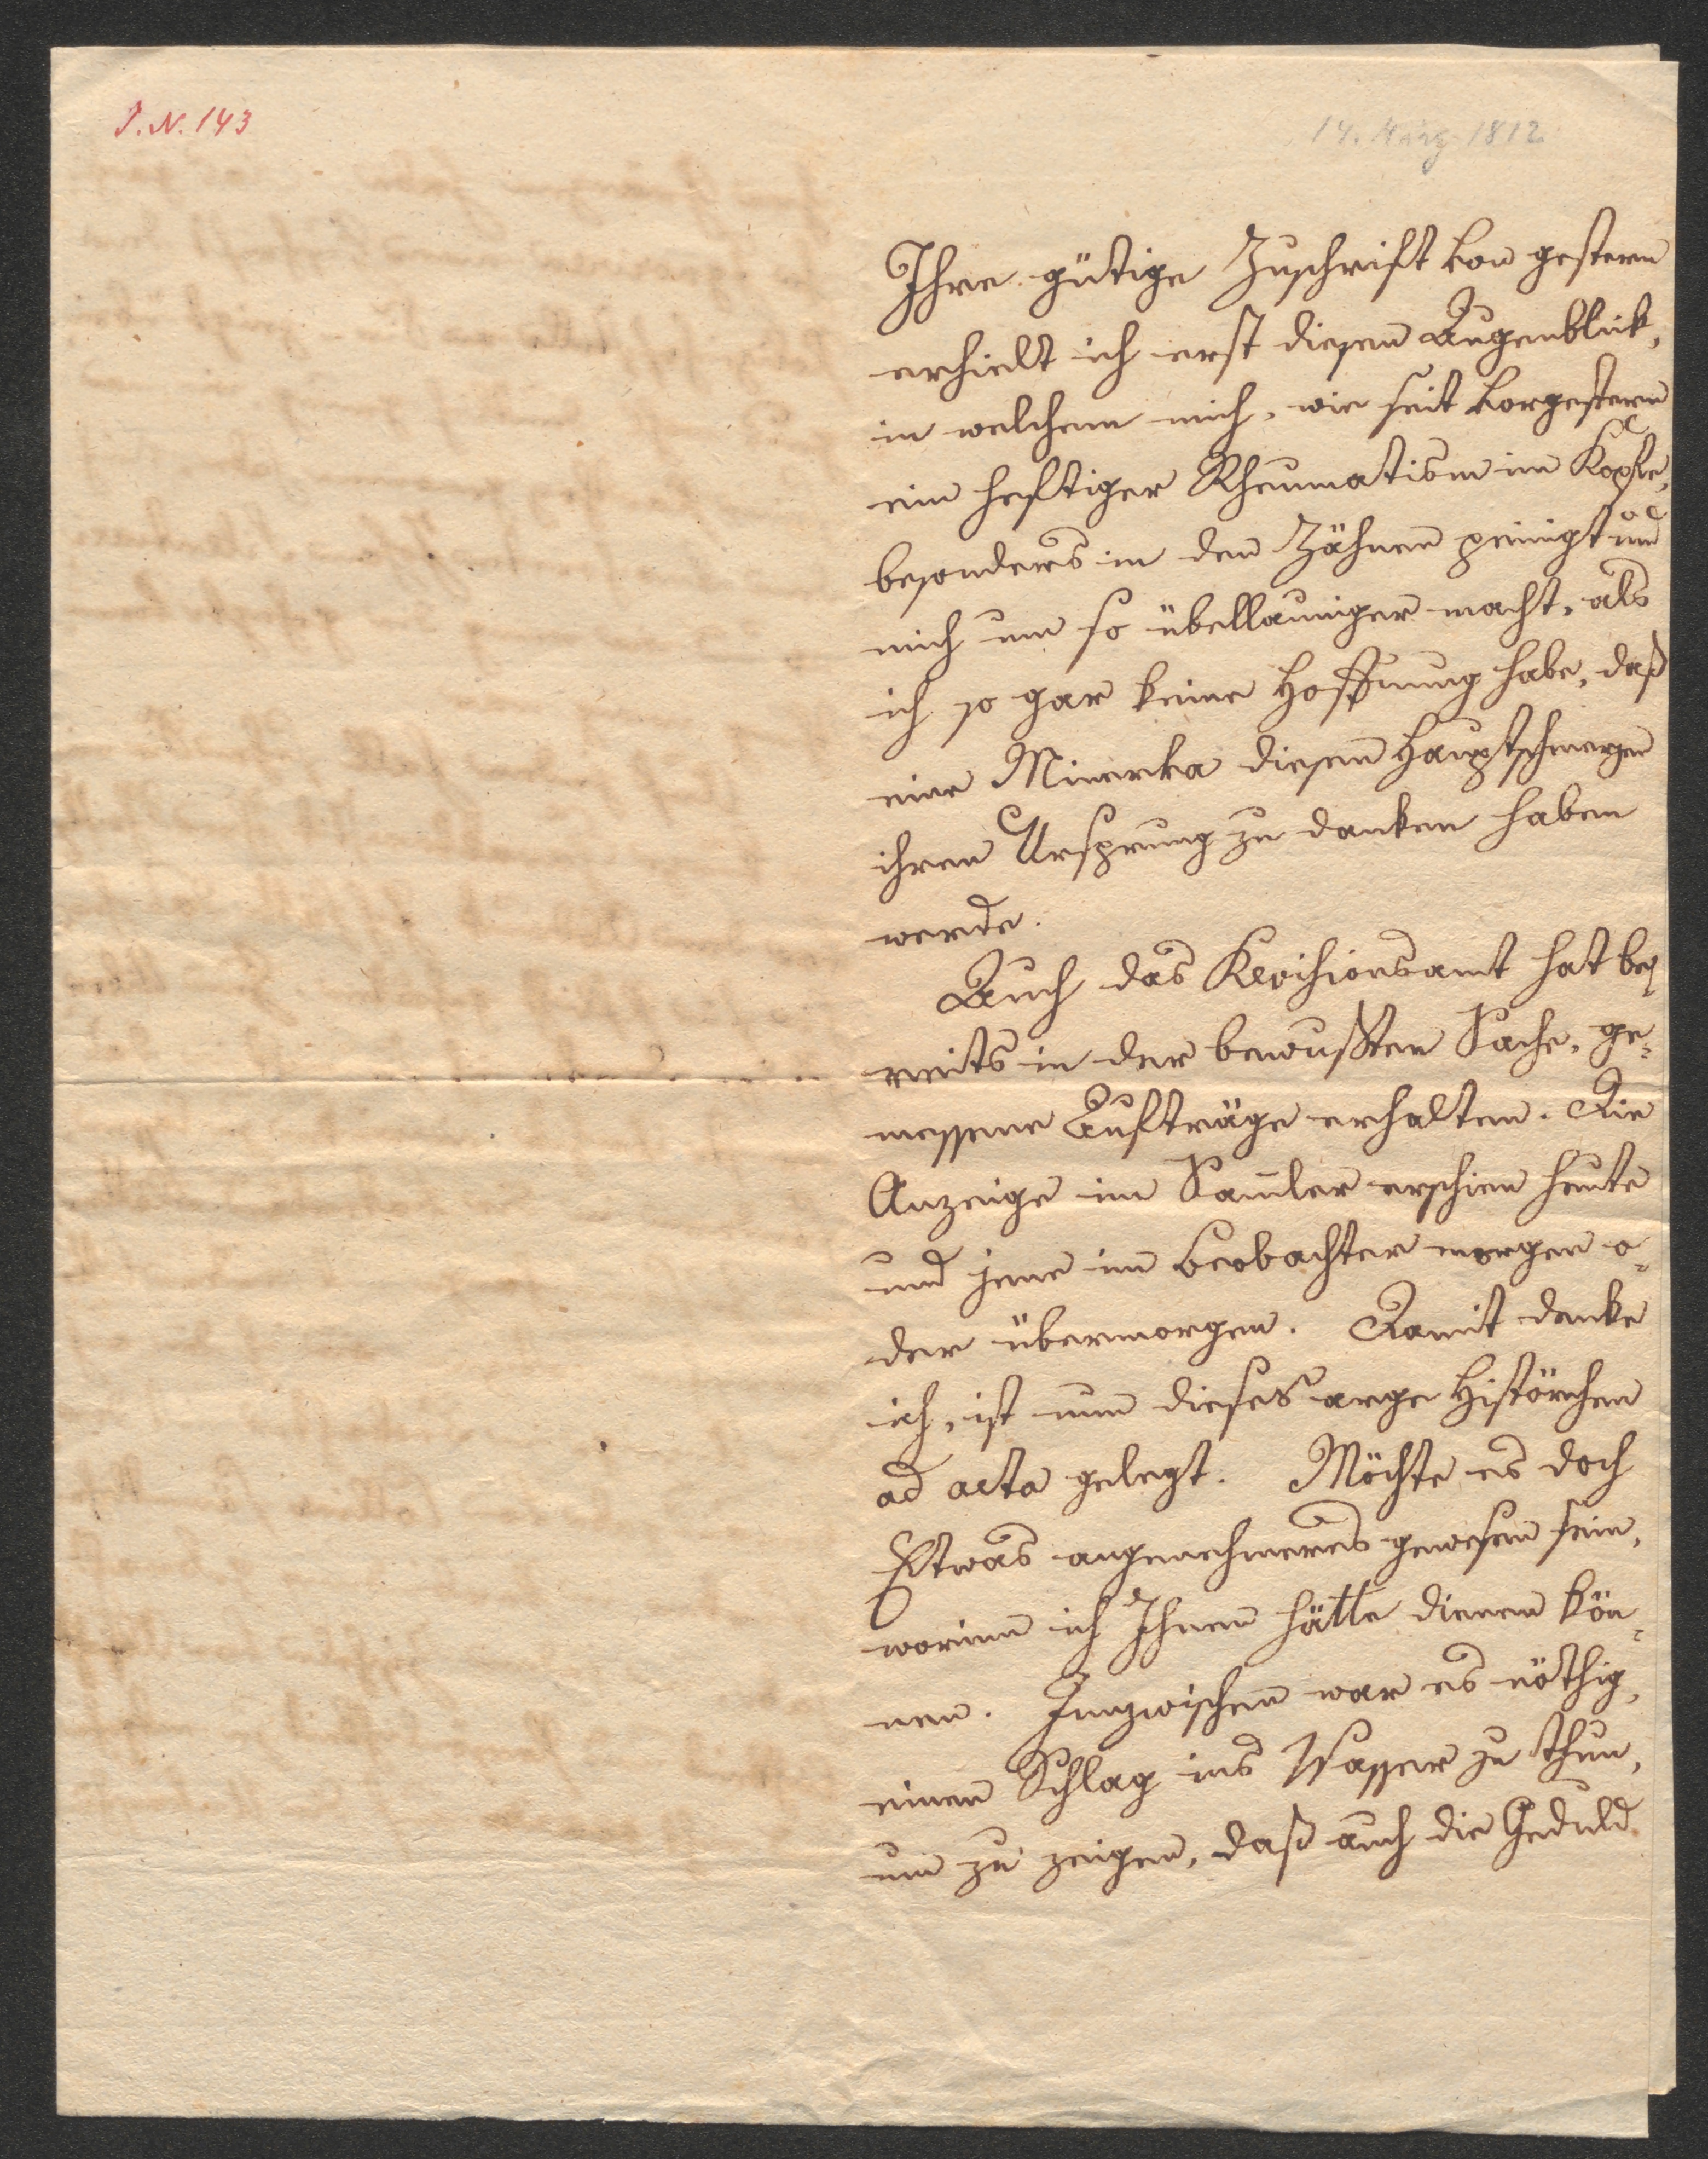 I. N. 143
14. März 1812
Ihre gütige Zuschrift von gestern
erhielt ich erst diesen Augenblick,
in welchem mich, wie seit vorgestern
ein heftiger Rheumatism im Kopfe,
besonders in den Zähnen peinigt und
mich um so übellauniger macht, als
ich so gar keine Hoffnung habe, daß
eine Minerva diesen Hauptschmerzen
ihren Ursprung zu danken haben
werde.
Auch das Revisionsamt hat be¬
reits in der bewußten Sache, ge¬
messene Aufträge erhalten. Die
Anzeige im Samler erschien heute
und jene im Beobachter morgen o¬
der übermorgen. Damit denke
ich, ist nun dieses arge Histörchen
ad acta gelegt. Möchte es doch
Etwas angenehmeres gewesen sein,
worinn ich Ihnen hätte dienen kön¬
nen. Innzwischen war es nöthig,
einen Schlag ins Wasser zu thun,
um zu zeigen, daß auch die Geduld